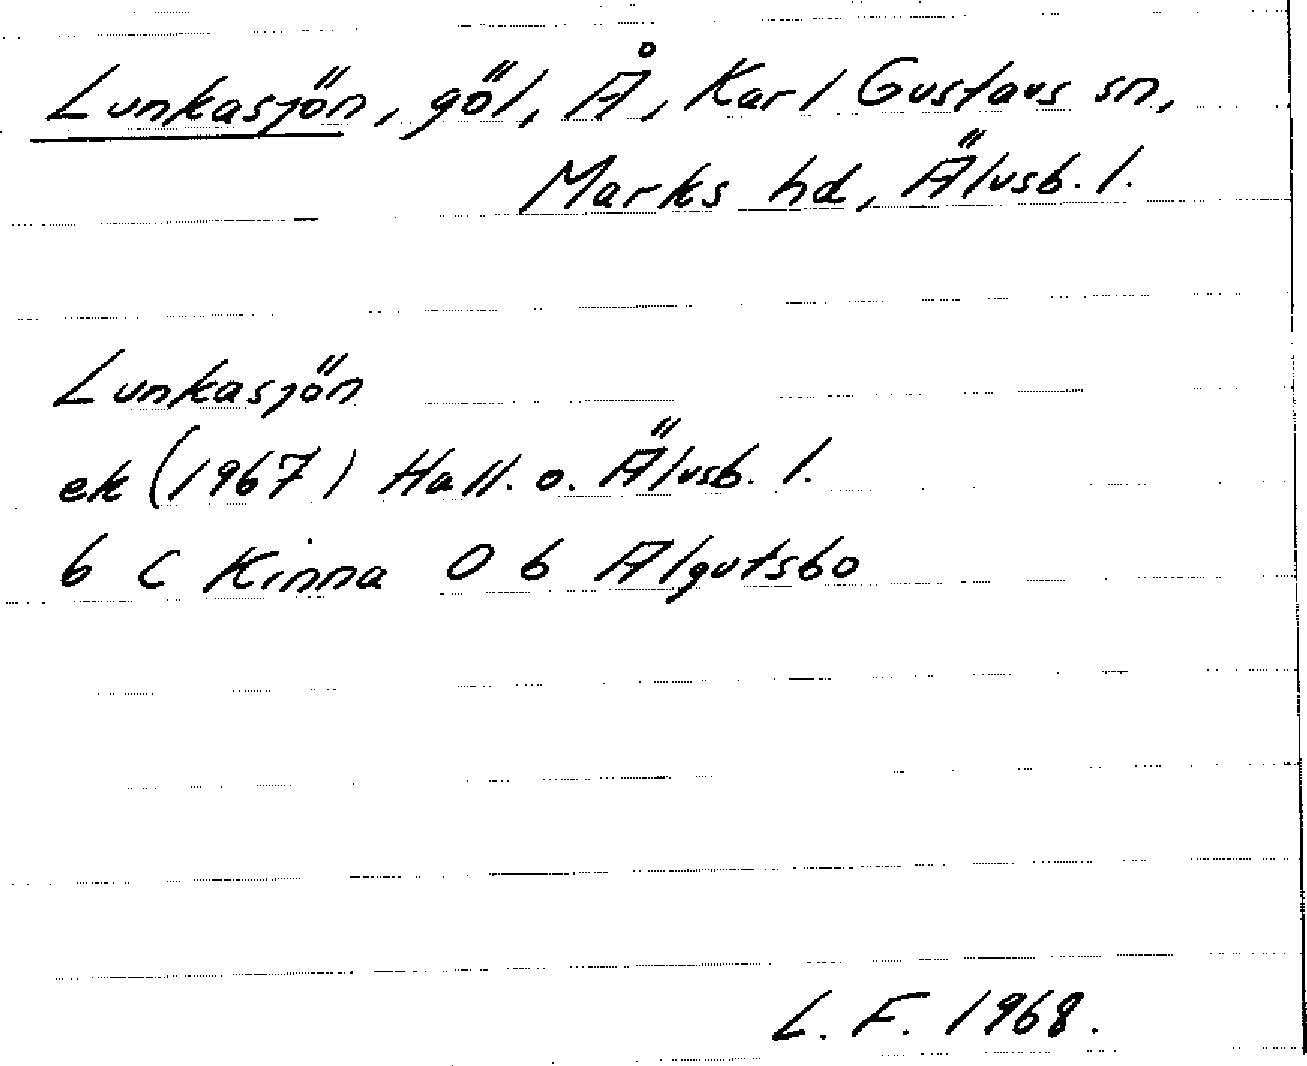 Lunkasjön, göl, Å, Karl Gustavs sn,
Marks hd, Älvsb. l.
Lunkasjön
ek (1967) Hall. o. Älvsb. l.
6 C Kinna 0 6 Algutsbo
L. F. 1968.